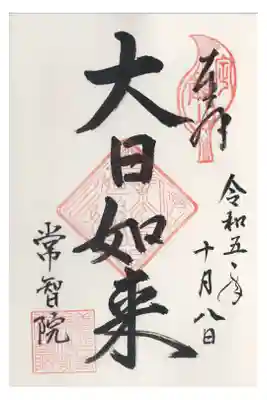 奉拝
令和五年
十月八日
大日如来
常智院